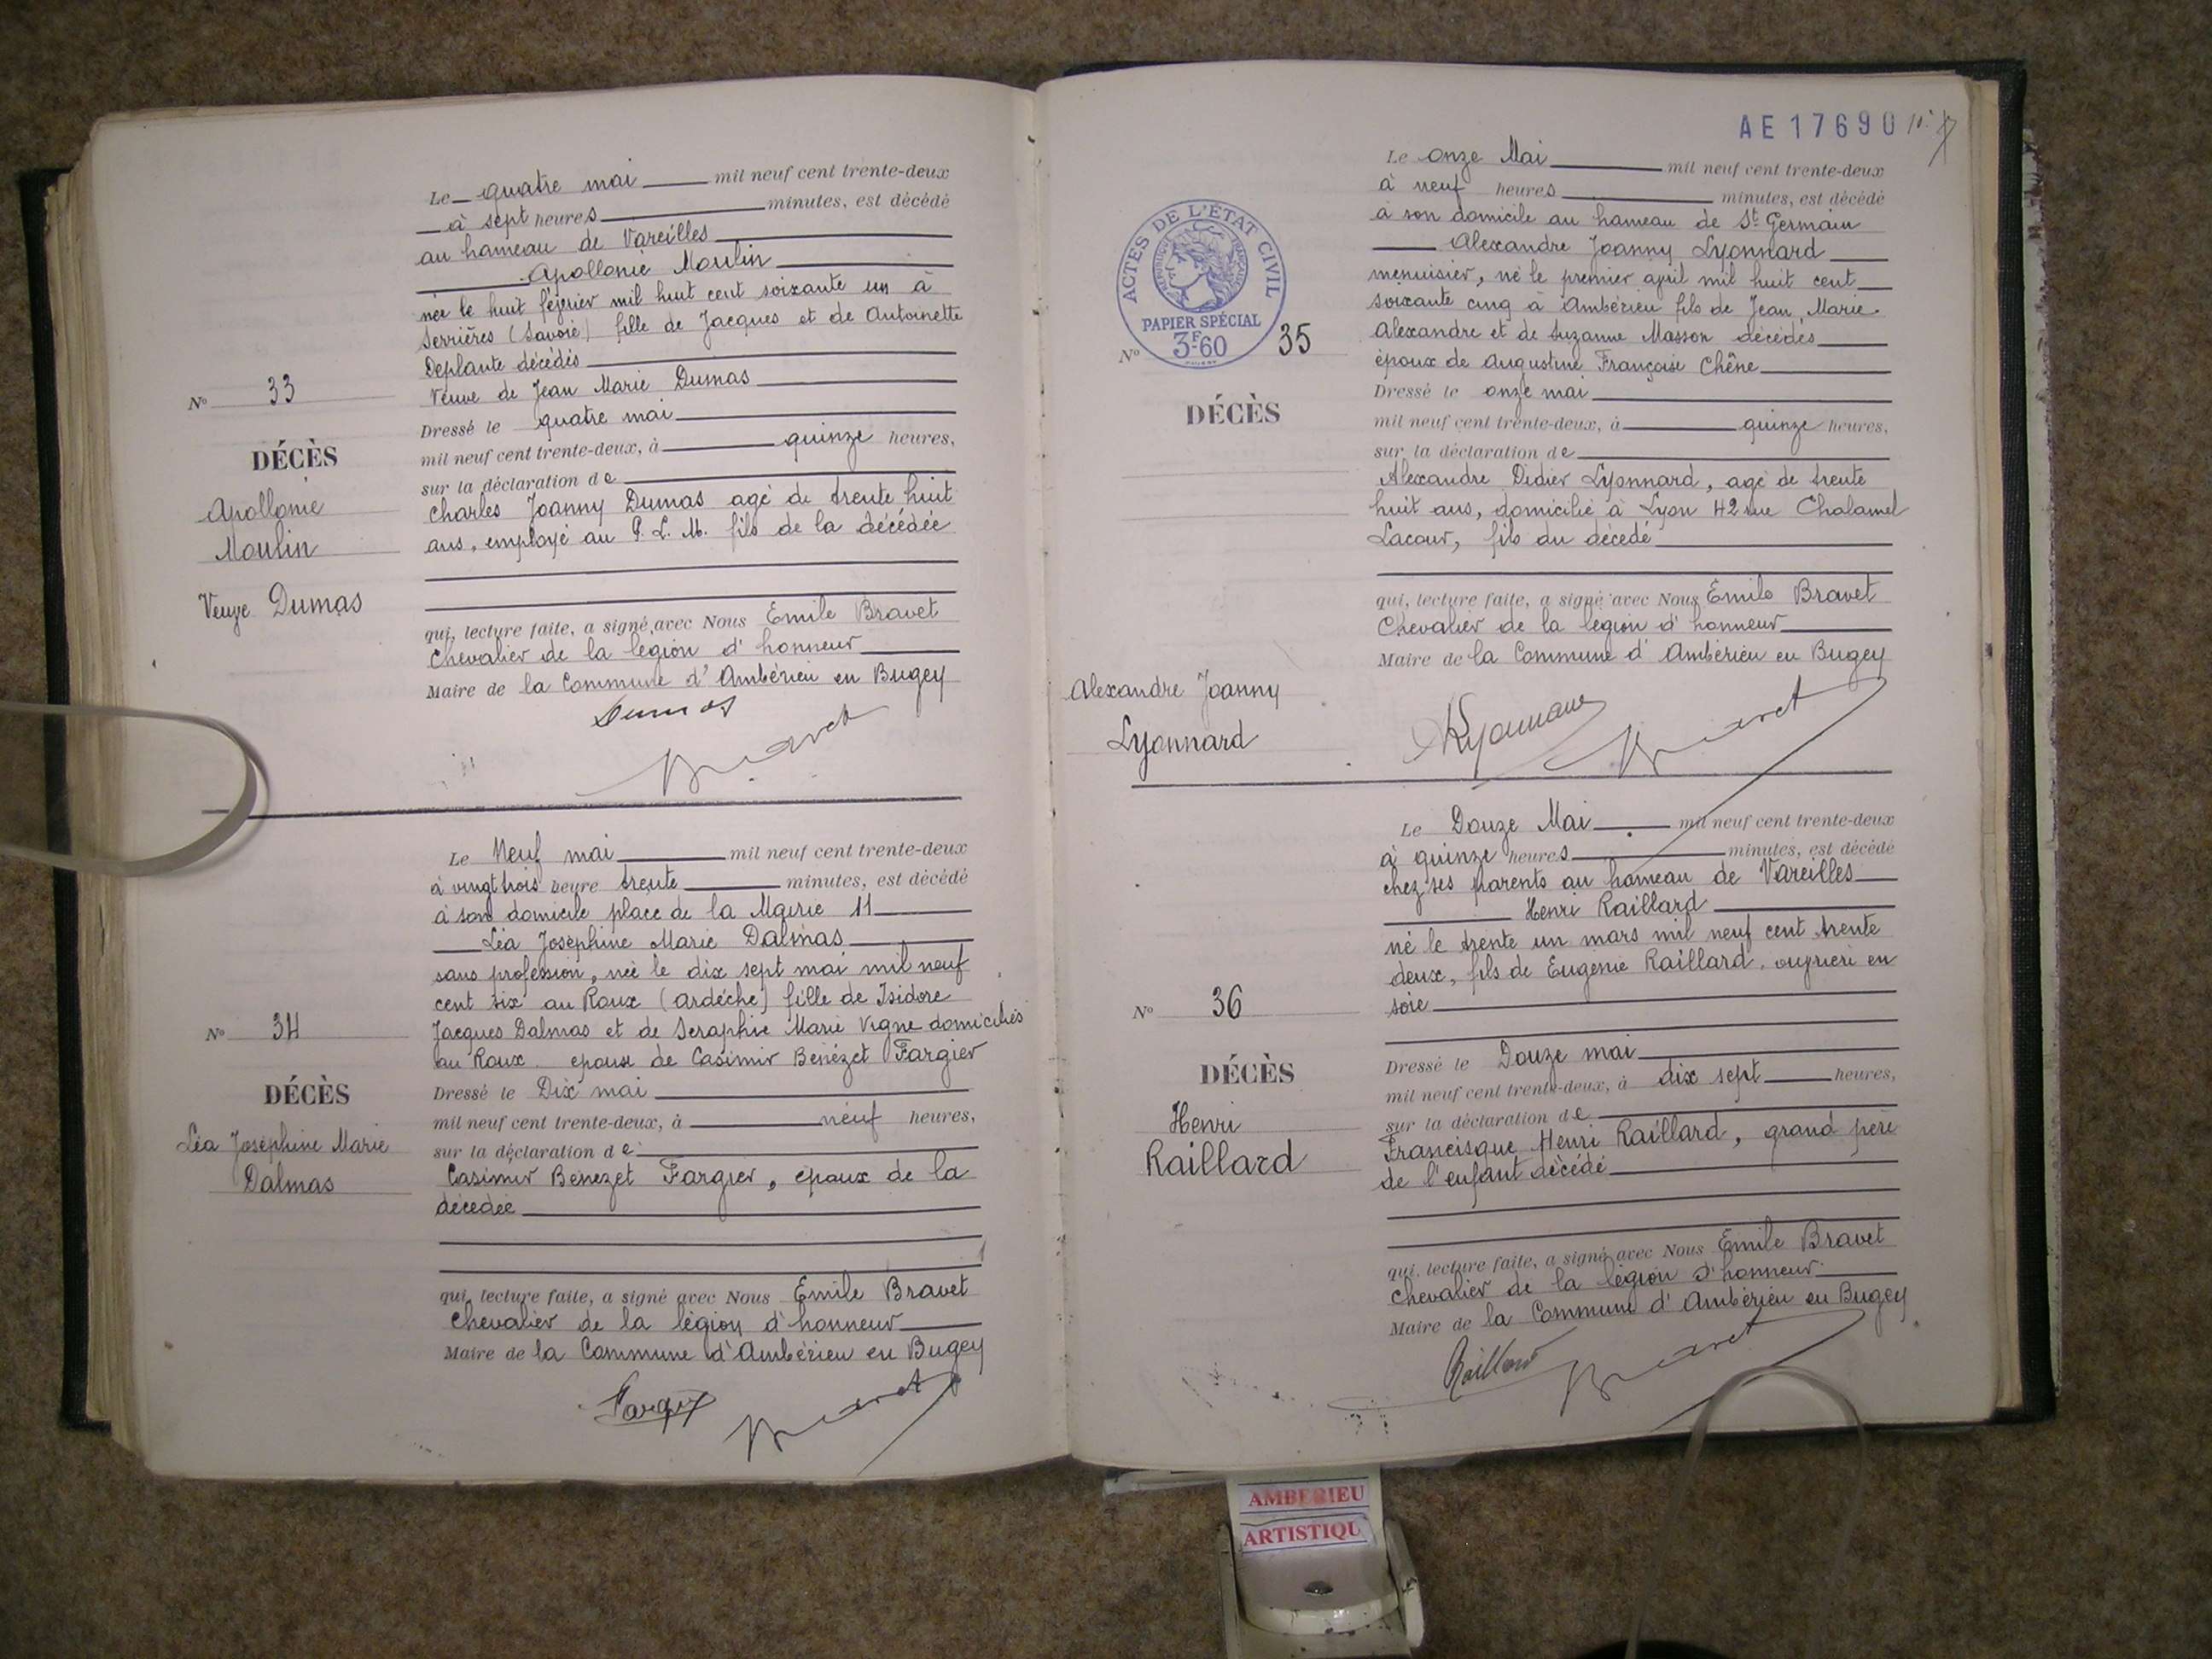 Le quatre mai mil neuf cent trente-deux
à sept heures minutes, est décédé
au hameau de Vareilles
Apollonie Moulin
née le huit février mil huit cent soixante un à
Serrières (Savoie) fille de Jacques et de Antoinette
Deplante décédés
Veuve de Jean Marie Dumas
Dressé le quatre mai
mil neuf cent trente-deux, à quinze heures,
sur la déclaration de
Charles Joanny Dumas agé de trente huit
ans, employé au P. L. M. fils de la décédée
qui, lecture faite, a signé avec Nous Emile Bravet
Chevalier de la légion d'honneur
Maire de la Commune d'Ambérieu en Bugey
Dumas
Bravet
N° 33
DÉCÈS
Apollonie
Moulin
Veuve Dumas
Le Neuf mai mil neuf cent trente-deux
à vingt trois heure trente minutes, est décédé
à son domicile place de la Mairie 11
Léa Joséphine Marie Dalmas
sans profession, née le dix sept mai mil neuf
cent six au Roux (Ardéche) fille de Isidore
Jacques Dalmas et de Seraphie Marie Vigne domiciliés
au Roux epouse de Casimir Benézet Fargier
Dressé le Dix mai
mil neuf cent trente-deux, à neuf heures,
sur la déclaration de
Casimir Benezet Fargier, epoux de la
décédée
qui, lecture faite, a signé avec Nous Emile Bravet
Chevalier de la légion d'honneur
Maire de la Commune d'Ambérieu en Bugey
Fargier
Bravet
N° 34
DÉCÈS
Léa Joséphine Marie
Dalmas
AE17690
Le onze Mai mil neuf cent trente-deux
à neuf heures minutes, est décédé
à son domicile au hameau de St Germain
Alexandre Joanny Lyonnard
menuisier, né le premier avril mil huit cent
soixante cinq à Ambérieu fils de Jean Marie
Alexandre et de Suzanne Masson décédés
époux de Augustine Françoise Chêne
Dressé le onze mai
mil neuf cent trente-deux, à quinze heures,
sur la déclaration de
Alexandre Didier Lyonnard, agé de trente
huit ans, domicilié à Lyon 42 rue Chalamel
Lacour, fils du décédé
qui, lecture faite, a signé avec Nous Emile Bravet
Chevalier de la légion d'honneur
Maire de la Commune d'Ambérieu en Bugey
Bravet
ACTES DE L'ÉTAT CIVIL
RÉPUBLIQUE FRANÇAISE
PAPIER SPÉCIAL
3F-60
N° 35
DÉCÈS
Alexandre Joanny
Lyonnard
Le Douze Mai mil neuf cent trente-deux
à quinze heures minutes, est décédé
chez ses parents au hameau de Vareilles
Henri Raillard
né le trente un mars mil neuf cent trente
deux, fils de Eugenie Raillard, ouvrière en
soie
Dressé le Douze mai
mil neuf cent trente-deux, à dix sept heures,
sur la déclaration de
Francisque Henri Raillard, grand père
de l'enfant décédé
qui, lecture faite, a signé avec Nous Emile Bravet
Chevalier de la légion d'honneur
Maire de la Commune d'Ambérieu en Bugey
Raillard
Bravet
N° 36
DÉCÈS
Henri
Raillard
AMBERIEU
ARTISTIQU